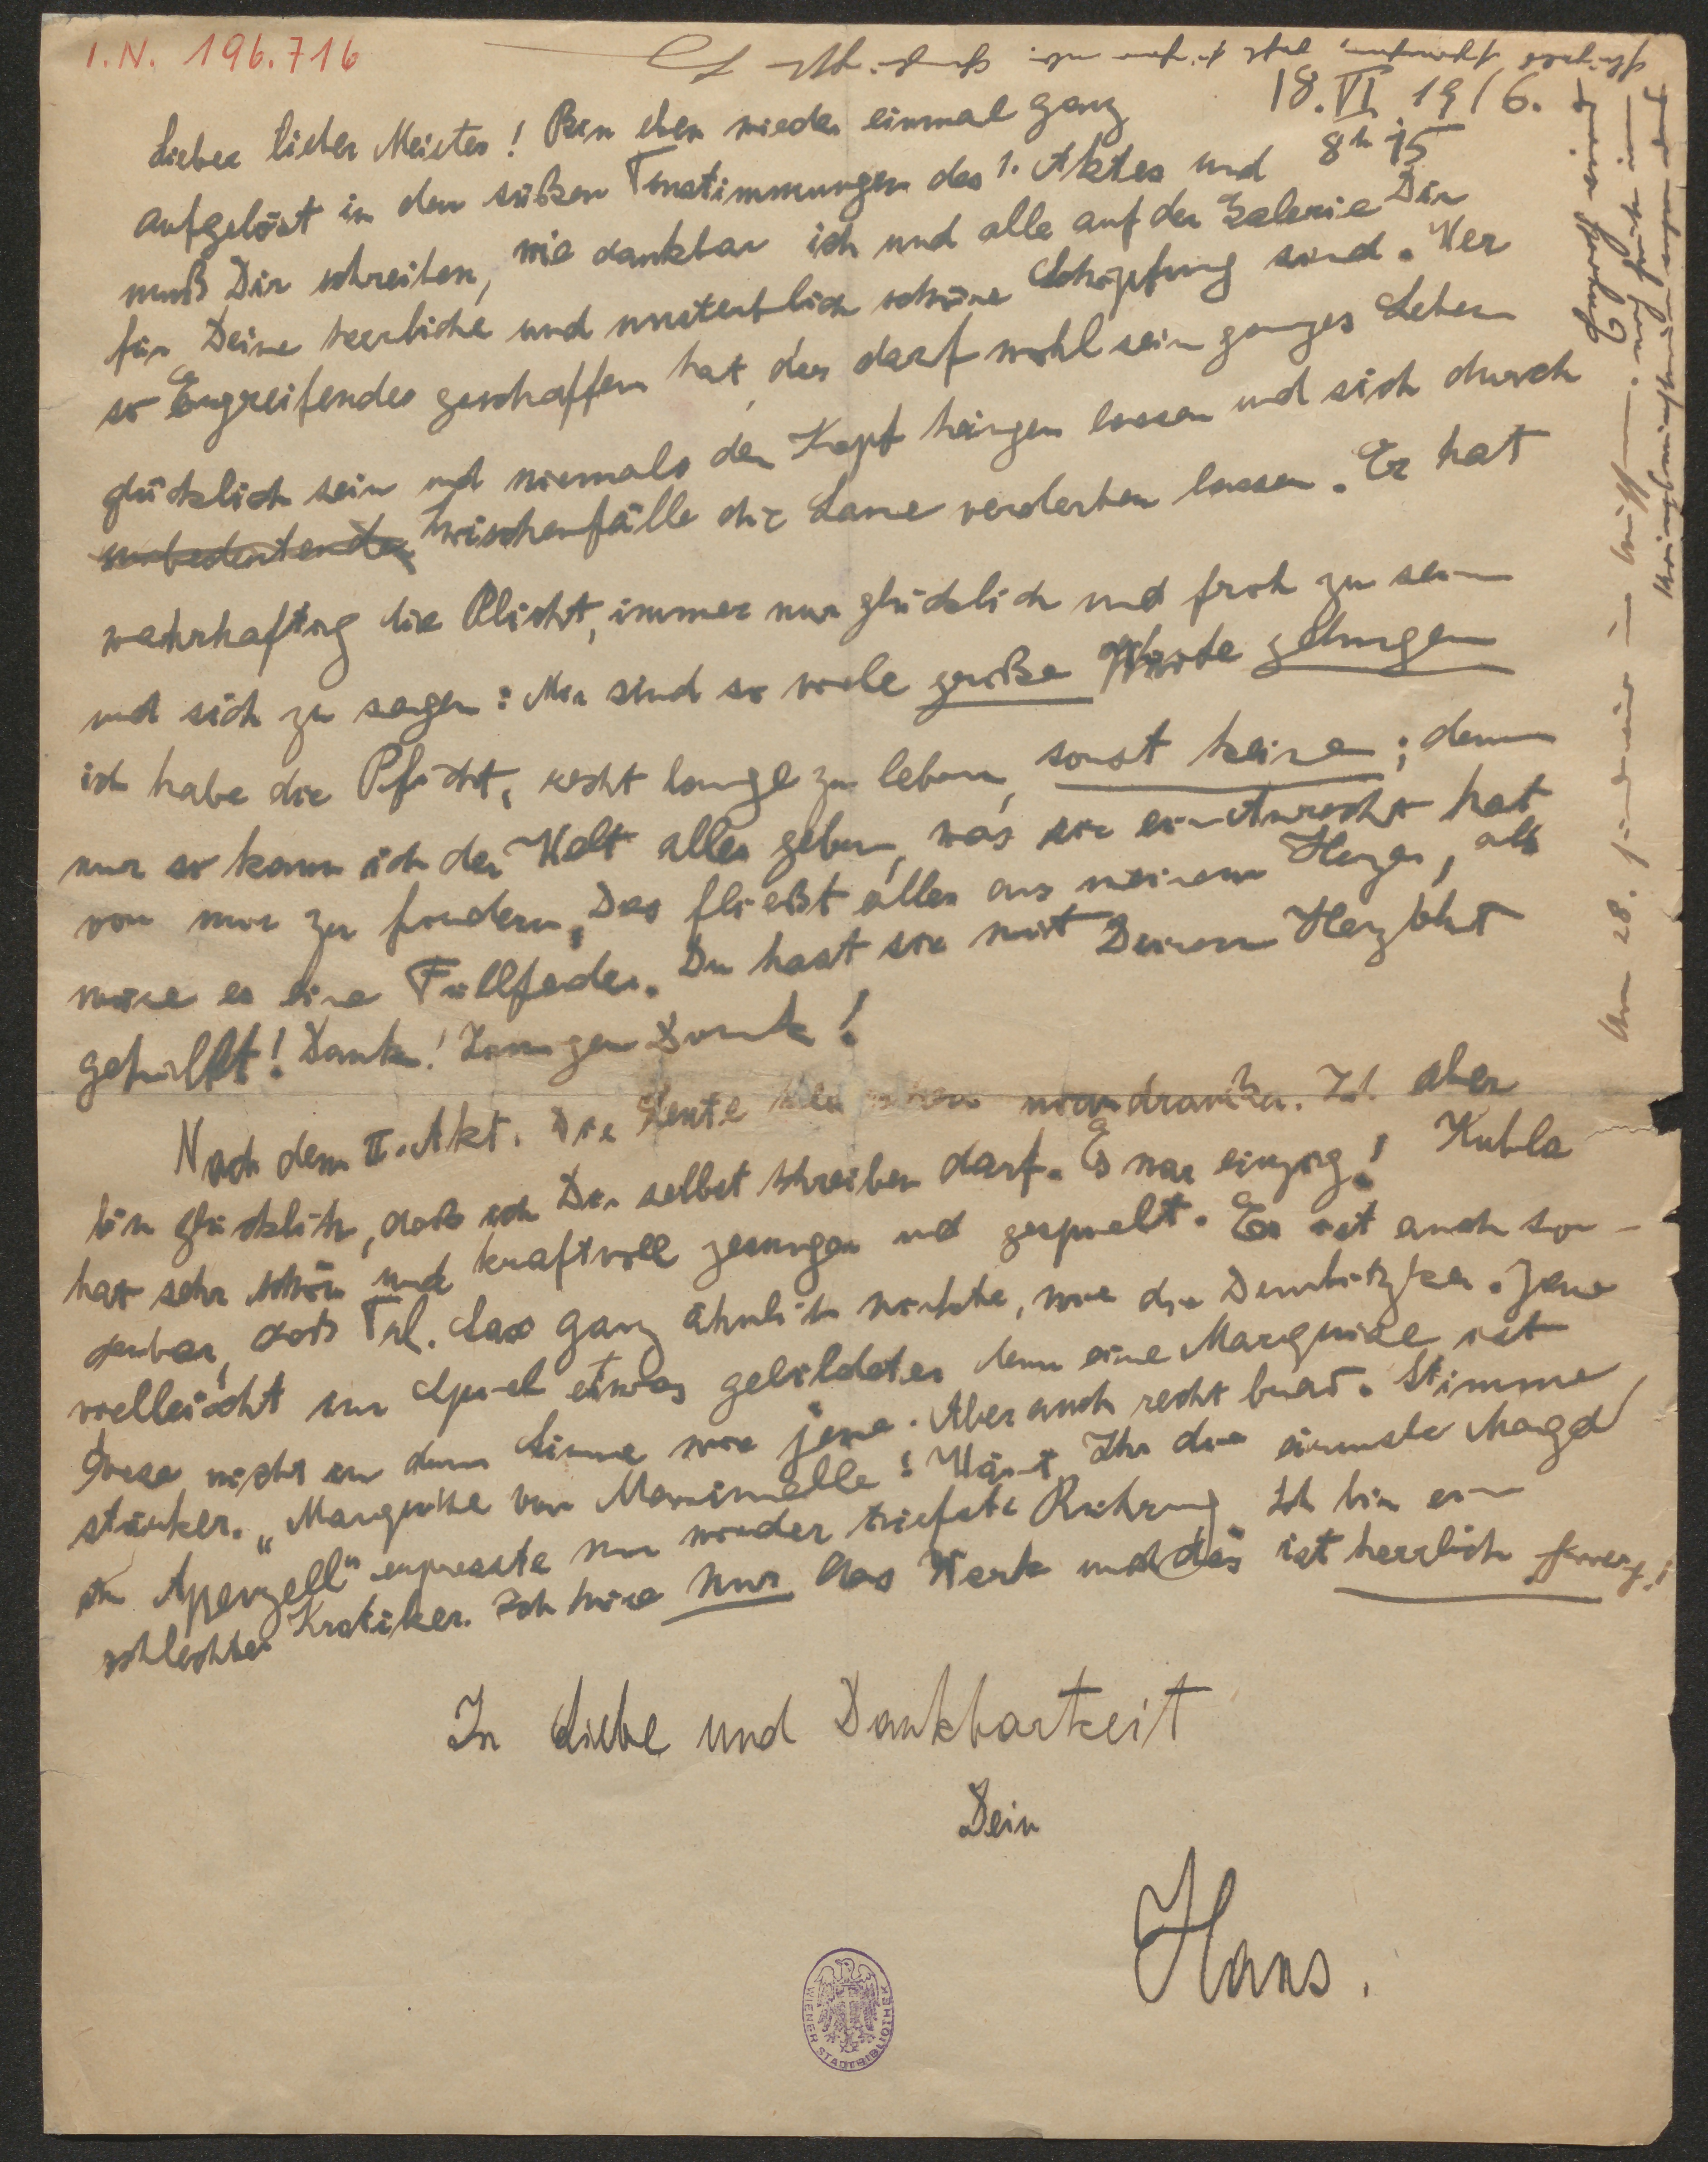 I.N. 196.716
18. VI. 1916.
8h 15
Lieber lieber Meister! Bin eben wieder einmal ganz
aufgelöst in den süßen Tonstimmungen des 1. Aktes und
muß Dir schreiben, wie dankbar ich und alle auf der Galerie Dir
für Deine herrliche und unsterblich schöne Schöpfung sind. Wer
so Ergreifendes geschaffen hat, der darf wohl sein ganzes Leben
glücklich sein und niemals den Kopf hängen lassen und sich durch
unbedeutende Zwischenfälle die Laune verderben lassen. Er hat
wahrhaftig die Plicht, immer nur glücklich und froh zu sein
und sich zu sagen: Mir sind so viele große Werke gelungen
ich habe die Pflicht, recht lange zu leben, sonst keine; denn
nur so kann ich der Welt alles geben, was sie ein Anrecht hat
von mir zu fordern. Das fließt alles aus meinem Herzen, als
wäre es eine Füllfeder. Du hast sie mit Deinem Herzblut
gefüllt! Dank! Innigen Dank!
Nach dem II. Akt. Die Leute sind draußen. Ich aber
bin glücklich, daß ich Dir selbst schreiben darf. Es war einzig! Kubla
hat sehr schön und kraftvoll gesungen und gespielt. Es ist auch son-
derbar, daß Frl. Lax ganz ähnlich wirkte, wie die Dembitzka. Jene
vielleicht im Spiel etwas gebildeter denn eine Marquise ist
diese nicht in dem Sinne wie jene. Aber auch recht brav. Stimme
stärker. „Marquise von Massimelle! Wär't Ihr die ärmste Magd
in Apenzell" erpresste mir wieder tiefste Rührung. Ich bin ein
schlechter Kritiker. Ich höre nur das Werk und das ist herrlich
In Liebe und Dankbarkeit
Dein
Hans.
WIENER STADTBIBLIOTHEK